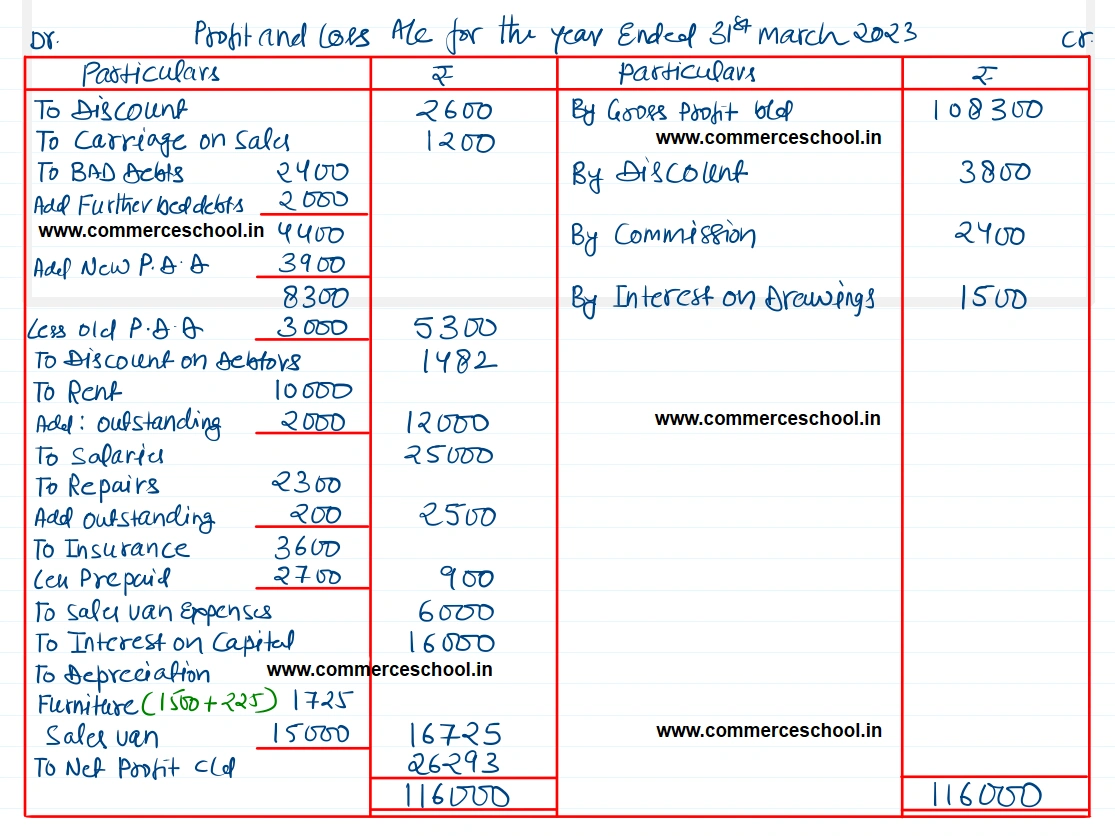 Dr. Profit and Loss A/c for the year Ended 31st March 2023 Cr.
Particulars ₹ Particulars ₹
To Discount 2600 By Gross Profit b/d 108300
To Carriage on Sales 1200 www.commerceschool.in
To BAD Debts 2400 By Discount 3800
Add Further bad debts 2000
www.commerceschool.in 4400 By Commission 2400
Add New P.D.D 3900
8300 By Interest on Drawings 1500
Less old P.D.D 3000 5300
To Discount on Debtors 1482
To Rent 10000
Add: outstanding 2000 12000 www.commerceschool.in
To Salaries 25000
To Repairs 2300
Add outstanding 200 2500
To Insurance 3600
Less Prepaid 2700 900
To Sales van Expenses 6000
To Interest on Capital 16000
To Depreciation www.commerceschool.in
Furniture (1500+225) 1725
Sales van 15000 16725 www.commerceschool.in
To Net Profit c/d 26293
116000 116000